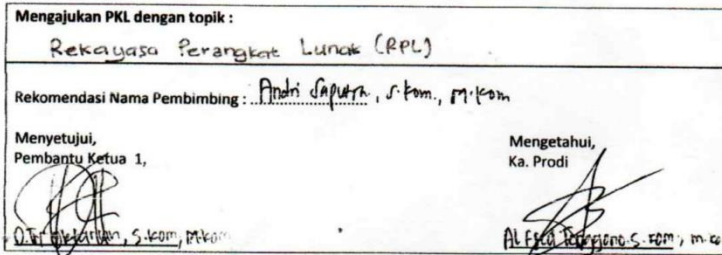 Mengajukan PKL dengan topik :
Rekayasa Perangkat Lunak (RPL)
Rekomendasi Nama Pembimbing : Andri Saputra, S.Kom., M.Kom
Menyetujui,
Pembantu Ketua 1,
Mengetahui,
Ka. Prodi
S.Kom, M.Kom
S.Kom., M.Ko